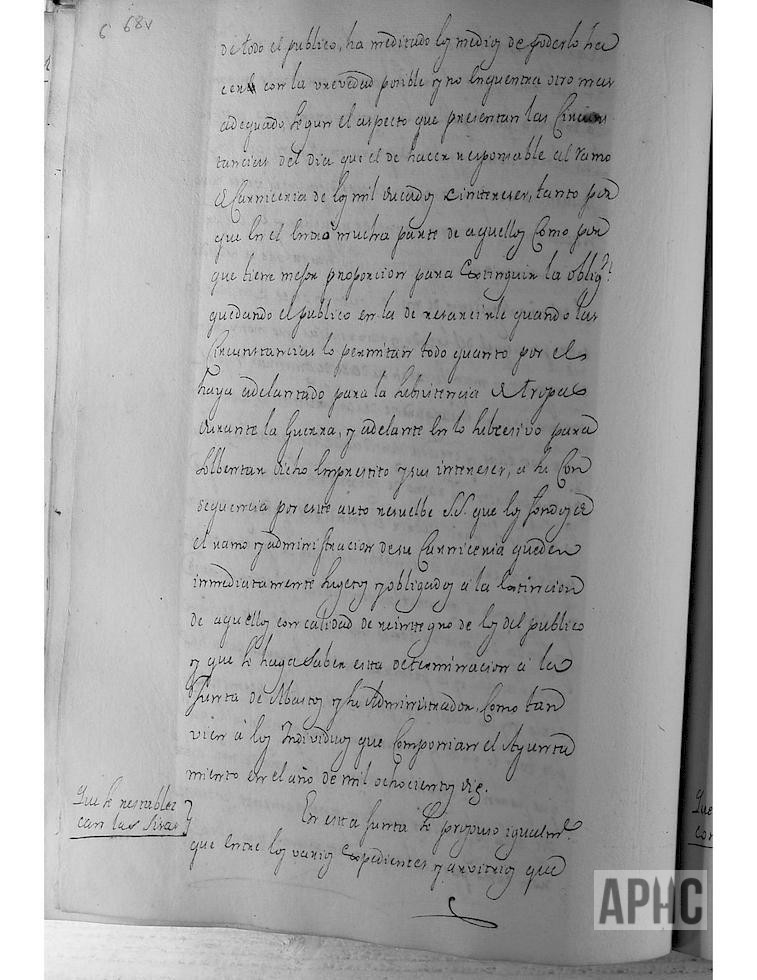 6 68v
de todo el publico, ha meditado los medios de poderlo ha
cer con la vrevedad posible y no encuentra otro mas
adequado, segun el aspecto que presentan las Circuns
tancias del dia que el de hacer responsable al ramo
de Carniceria de los mil ducados e intereses, tanto por
que en el entró mucha parte de aquellos como por
que tiene mejor proporcion para extinguir la oblig.n
quedando el publico en la de resarcirle quando las
Circunstancias lo permitan todo quanto por el se
haya adelantado para la Subsistencia de tropas
durante la Guerra, y adelante en lo subcesivo para
libertar dicho emprestito y sus intereses, a su Con
sequencia por este auto resuelbe S.S. que los fondos de
el ramo y administracion de su Carniceria queden
inmediatamente sugetos y obligados a la extincion
de aquellos con calidad de reintegro de los del publico
y que se haga saber esta determinacion a la
Junta de Abastos y su Administrador, como tan
vien a los Individuos que componian el Ayunta
miento en el año de mil ochocientos diez.
Que se restablez
can las Sisas
En esta Junta se propuso igualm.te
que entre los varios expedientes y arvitrios que
APHC